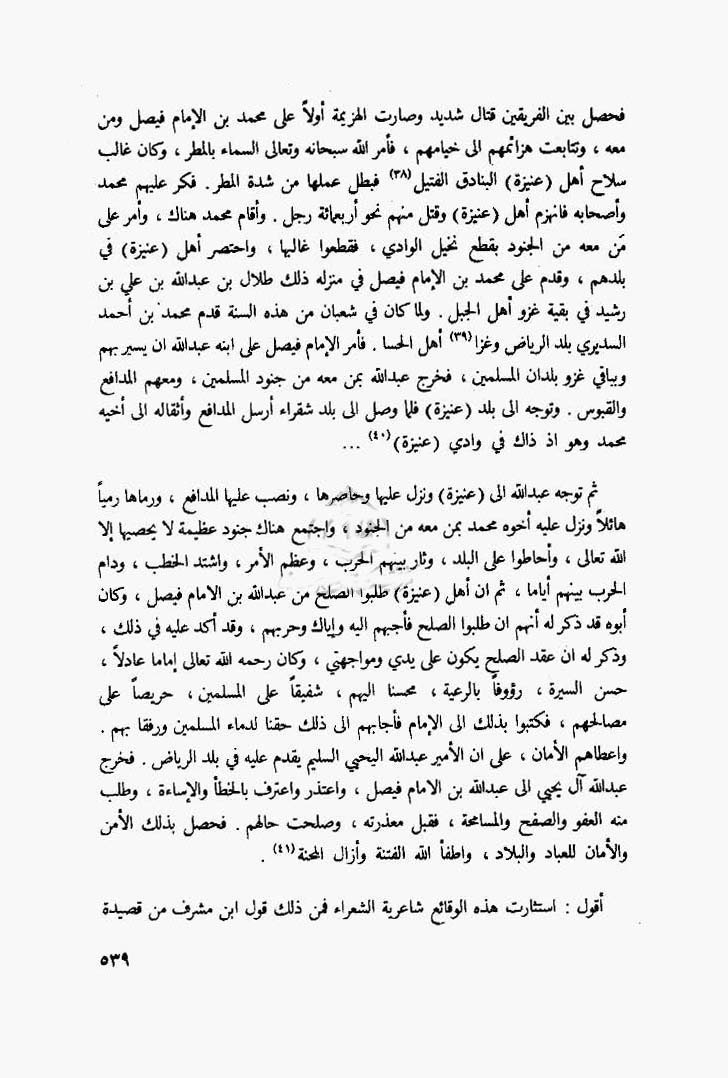 فحصل بين الفريقين قتال شديد وصارت الهزيمة أولاً على محمد بن الإمام فيصل ومن
معه ، وتتابعت هزائمهم الى خيامهم ، فأمر الله سبحانه وتعالى السماء بالمطر ، وكان غالب
سلاح أهل (عنيزة) البنادق الفتيل(٣٨) فبطل عملها من شدة المطر . فكر عليهم محمد
وأصحابه فانهزم أهل (عنيزة) وقتل منهم نحو أربعمائة رجل . وأقام محمد هناك ، وأمر على
مَن معه من الجنود بقطع نخيل الوادي ، فقطعوا غالبها ، واحتصر أهل (عنيزة) في
بلدهم ، وقدم على محمد بن الإمام فيصل في منزله ذلك طلال بن عبدالله بن علي بن
رشيد في بقية غزو أهل الجبل . ولما كان في شعبان من هذه السنة قدم محمد بن أحمد
السديري بلد الرياض وغزا(٣٩) أهل الحسا . فأمر الإمام فيصل على ابنه عبدالله ان يسير بهم
وبباقي غزو بلدان المسلمين ، فخرج عبدالله بمن معه من جنود المسلمين ، ومعهم المدافع
والقبوس . وتوجه الى بلد (عنيزة) فلما وصل الى بلد شقراء أرسل المدافع وأثقاله الى أخيه
محمد وهو اذ ذاك في وادي (عنيزة)(٤٠) ...
ثم توجه عبدالله الى (عنيزة) ونزل عليها وحاصرها ، ونصب عليها المدافع ، ورماها رمياً
هائلاً ونزل عليه أخوه محمد بمن معه من الجنود ، واجتمع هناك جنود عظيمة لا يحصيها إلا
الله تعالى ، وأحاطوا على البلد ، وثار بينهم الحرب ، وعظم الأمر ، واشتد الخطب ، ودام
الحرب بينهم أياما ، ثم ان أهل (عنيزة) طلبوا الصلح من عبدالله بن الامام فيصل ، وكان
أبوه قد ذكر له أنهم ان طلبوا الصلح فأجبهم اليه وإياك وحربهم ، وقد أكد عليه في ذلك ،
وذكر له ان عقد الصلح يكون على يدي ومواجهتي ، وكان رحمه الله تعالى إماما عادلاً ،
حسن السيرة ، رؤوفاً بالرعية ، محسنا اليهم ، شفيقاً على المسلمين ، حريصاً على
مصالحهم ، فكتبوا بذلك الى الإمام فأجابهم الى ذلك حقنا لدماء المسلمين ورفقا بهم .
واعطاهم الأمان ، على ان الأمير عبدالله اليحيي السليم يقدم عليه في بلد الرياض . فخرج
عبدالله آل يحيي الى عبدالله بن الامام فيصل ، واعتذر واعترف بالخطأ والإساءة ، وطلب
منه العفو والصفح والمسامحة ، فقبل معذرته ، وصلحت حالهم . فحصل بذلك الأمن
والأمان للعباد والبلاد ، واطفأ الله الفتنة وأزال المحنة(٤١) .
أقول : استثارت هذه الوقائع شاعرية الشعراء فمن ذلك قول ابن مشرف من قصيدة
٥٣٩